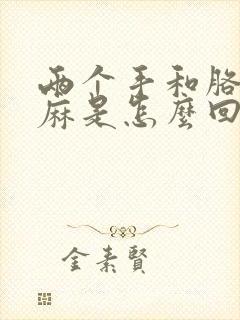 两个手和胳
麻是怎麼回
金素賢